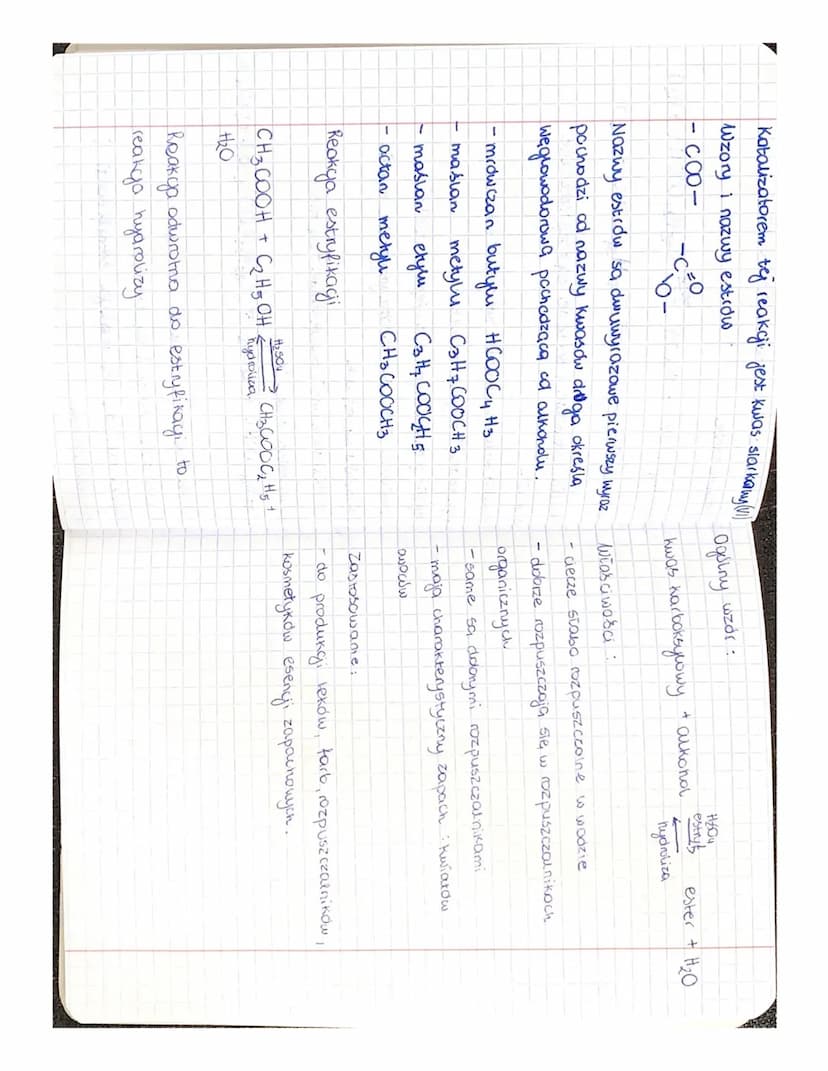 Katalizatorem tej reakcji jest kwas siarkowy(VI)
Wzory i nazwy estrów
- COO-   -C=O
O-
Nazwy estrów są dwuwyrazowe pierwszy wyraz
pochodzi od nazwy kwasów druga określa
węglowodorową pochodzącą od alkoholu.
- mrówczan butylu HCOOC4H3
- maślan metylu C3H7COOCH3
- maślan etylu C3H7COOC2H5
- octan metylu CH3COOCH3
Reakcja estryfikacji
H2SO4
CH3COOH + C2H5OH ⇄ CH3COOC2H5 +
hydroliza
H2O
Reakcja odwrotna do estryfikacji to
reakcja hydrolizy
Ogólny wzór:
H2SO4
estryf.
kwas karboksylowy + alkohol ⇄ ester + H2O
hydroliza
Właściwości:
- ciecze słabo rozpuszczalne w wodzie
- dobrze rozpuszczają się w rozpuszczalnikach
organicznych
- same są dobrymi rozpuszczalnikami
- mają charakterystyczny zapach: kwiatów
owoców
Zastosowanie:
- do produkcji leków, farb, rozpuszczalników,
kosmetyków esencji zapachowych.